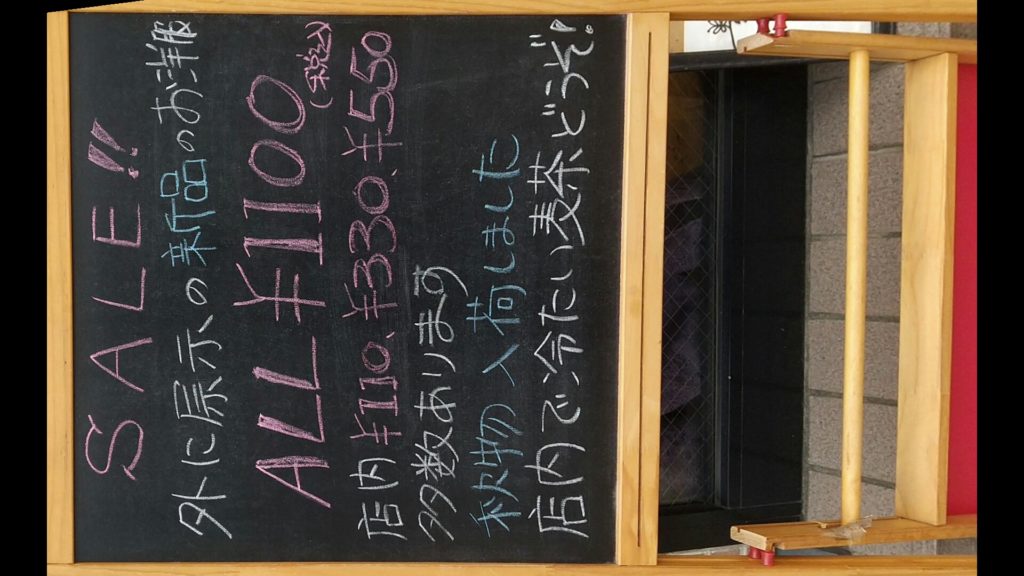 SALE!!
外に展示の新品のお洋服
ALL ¥1100 (税込)
店内¥110、¥330、¥550
多数あります
秋物入荷しました
店内で冷たい麦茶どうぞ!